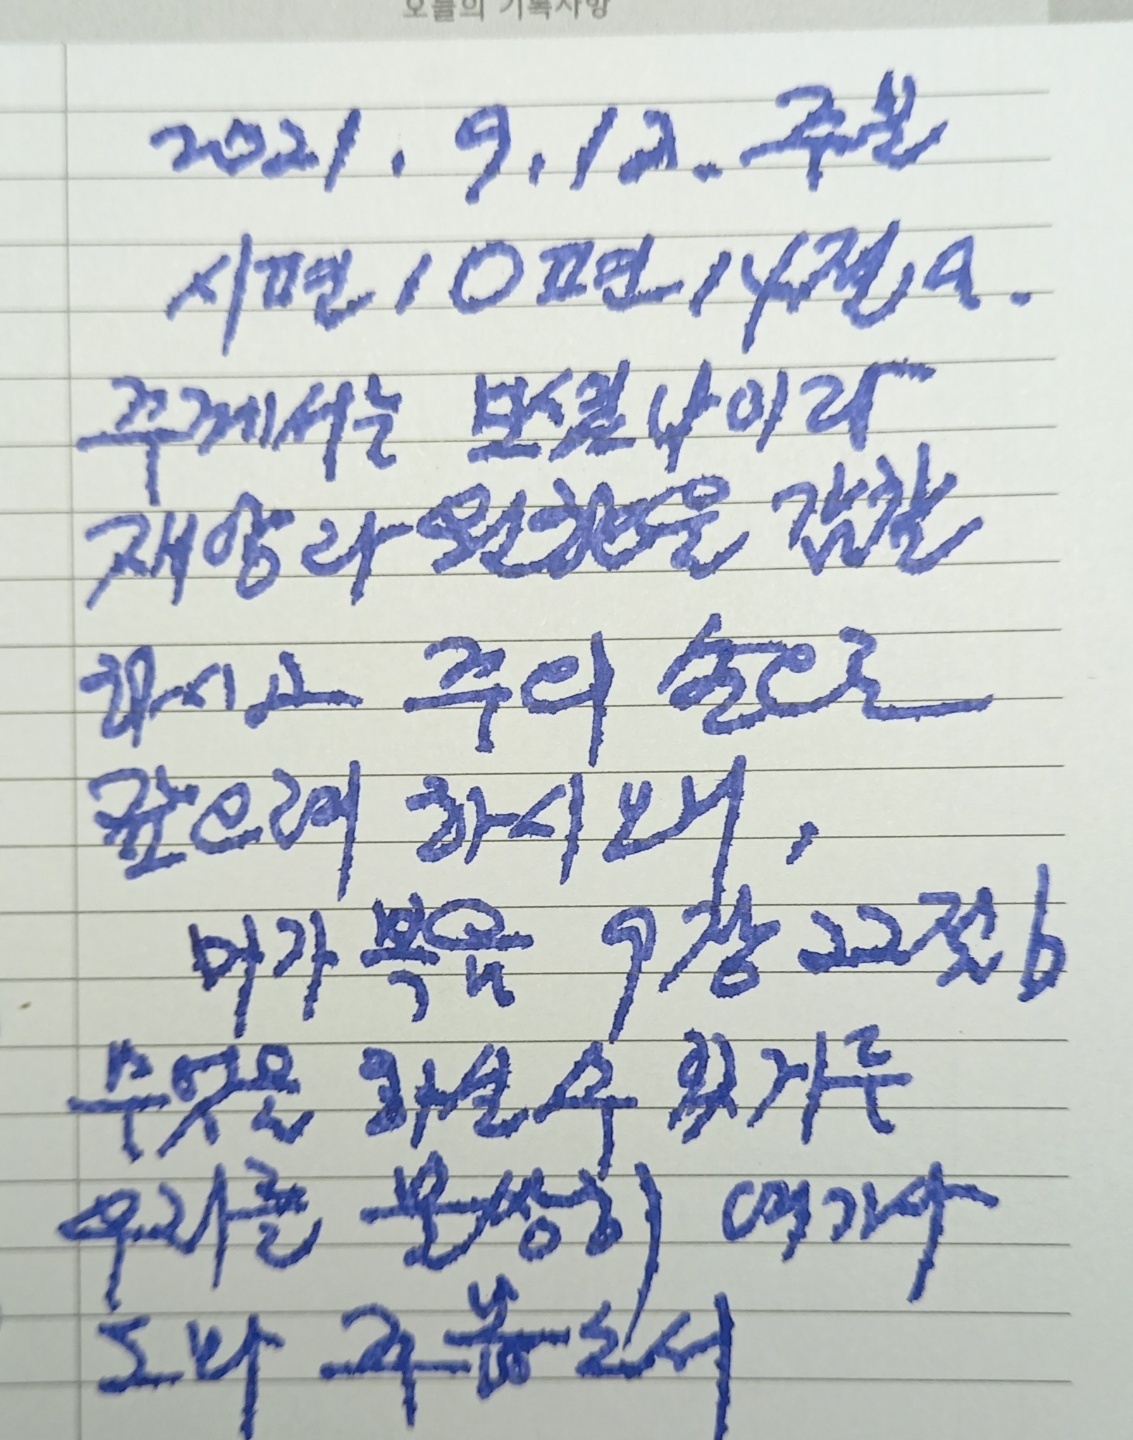 오늘의 기록사항
2021. 9. 12. 주일
시편 10편 14절a.
주께서는 보셨나이다
재앙과 원한을 감찰
하시고 주의 손으로
갚으려 하시오니,
마가복음 9장 22절b
무엇을 하실 수 있거든
우리를 불쌍히 여기사
도와 주옵소서